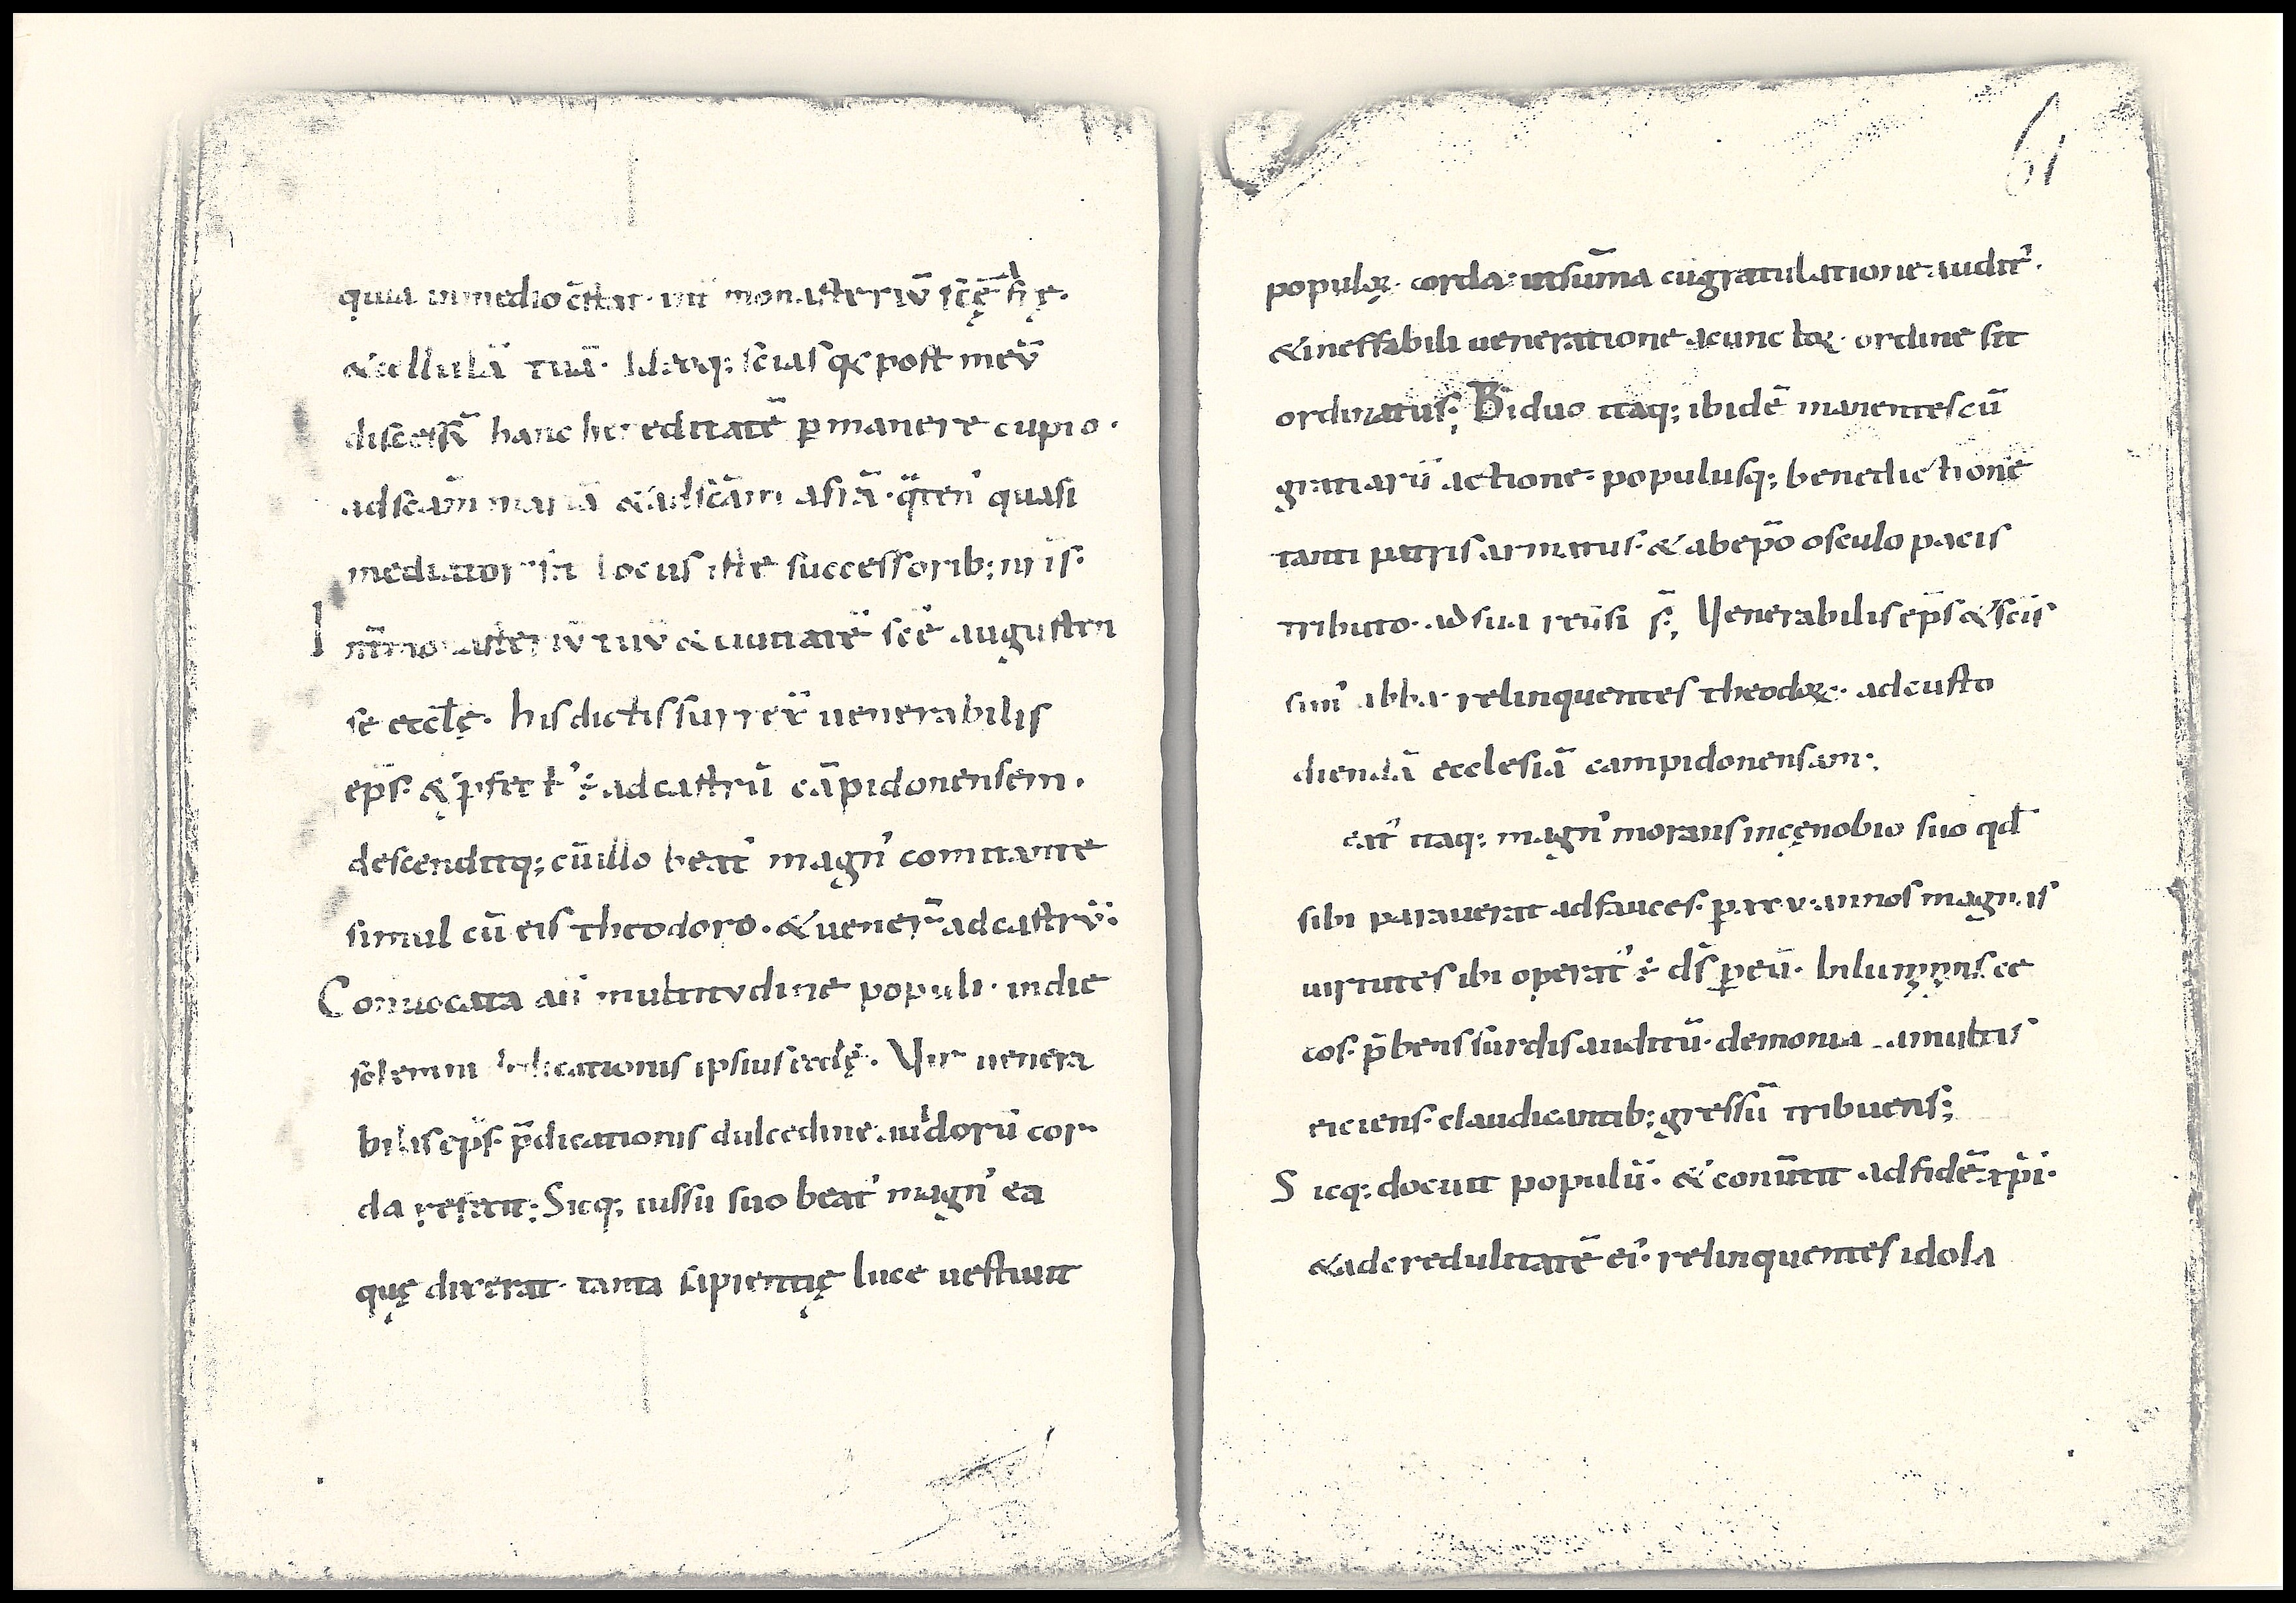 quia inmedio c̄stat · int monasteriū scę̄
& cellulā tuā · Ideoq; scias qđ post meū
discessū hanc hereditatē ꝑmanere cupio ·
adsc̄am mariā & adsc̄am afrā · quasi
mediator sit locus iste successorib; nr̄is ·
Int̄ monasteriū tuū & ciuitatē sc̄e augusten
se eccl̄ę · his dictis surrex̄ uenerabilis
ep̄s · & ad castrū cāpidonensem ·
descenditq; cū illo beat᾿ magn᾿ comitante
simul cū eis theodoro · & uener̄ ad castrū :
Conuocata aū multitudine populi · indie
solemni dedicationis ipsius eccl̄ę · Vir uenera
bilis ep̄s · p̄dicationis dulcedine · corū cor
da refecit ; Sicq; iussu suo beat᾿ magn᾿ ea
quę dixerat · tanta sapientię luce uestiuit
61
populoꝝ · corda · ut sūma cū gratulatione audit᾿ ·
& ineffabili ueneratione acunctoꝝ · ordine sit
ordinatus ; Biduo itaq; ibidē manentes cū
gratiarū actione · populusq; benedictione
tanti patris armatus · & abep̄o osculo pacis
tributo · ad sua reūsi s̄ ; Venerabilis ep̄s & scīs
sim᾿ abba · relinquentes theodoꝝ · adcusto
diendā ecclesiā campidonensam ;
eat᾿ itaq; magn᾿ morans incęnobio suo qđ
sibi parauerat adfauces · ꝑ xxv · annos magnas
uirtutes ibi operat᾿ ÷ dś ꝑ eū · Inluminans ce
cos · p̄bens surdis auditū · demonia amultis
eiciens · claudicantib; gressū tribuens ;
Sicq; docuit populū · & conūtit adfidē xp̄i ·
& adcredulitatē ei᾿ · relinquentes idola